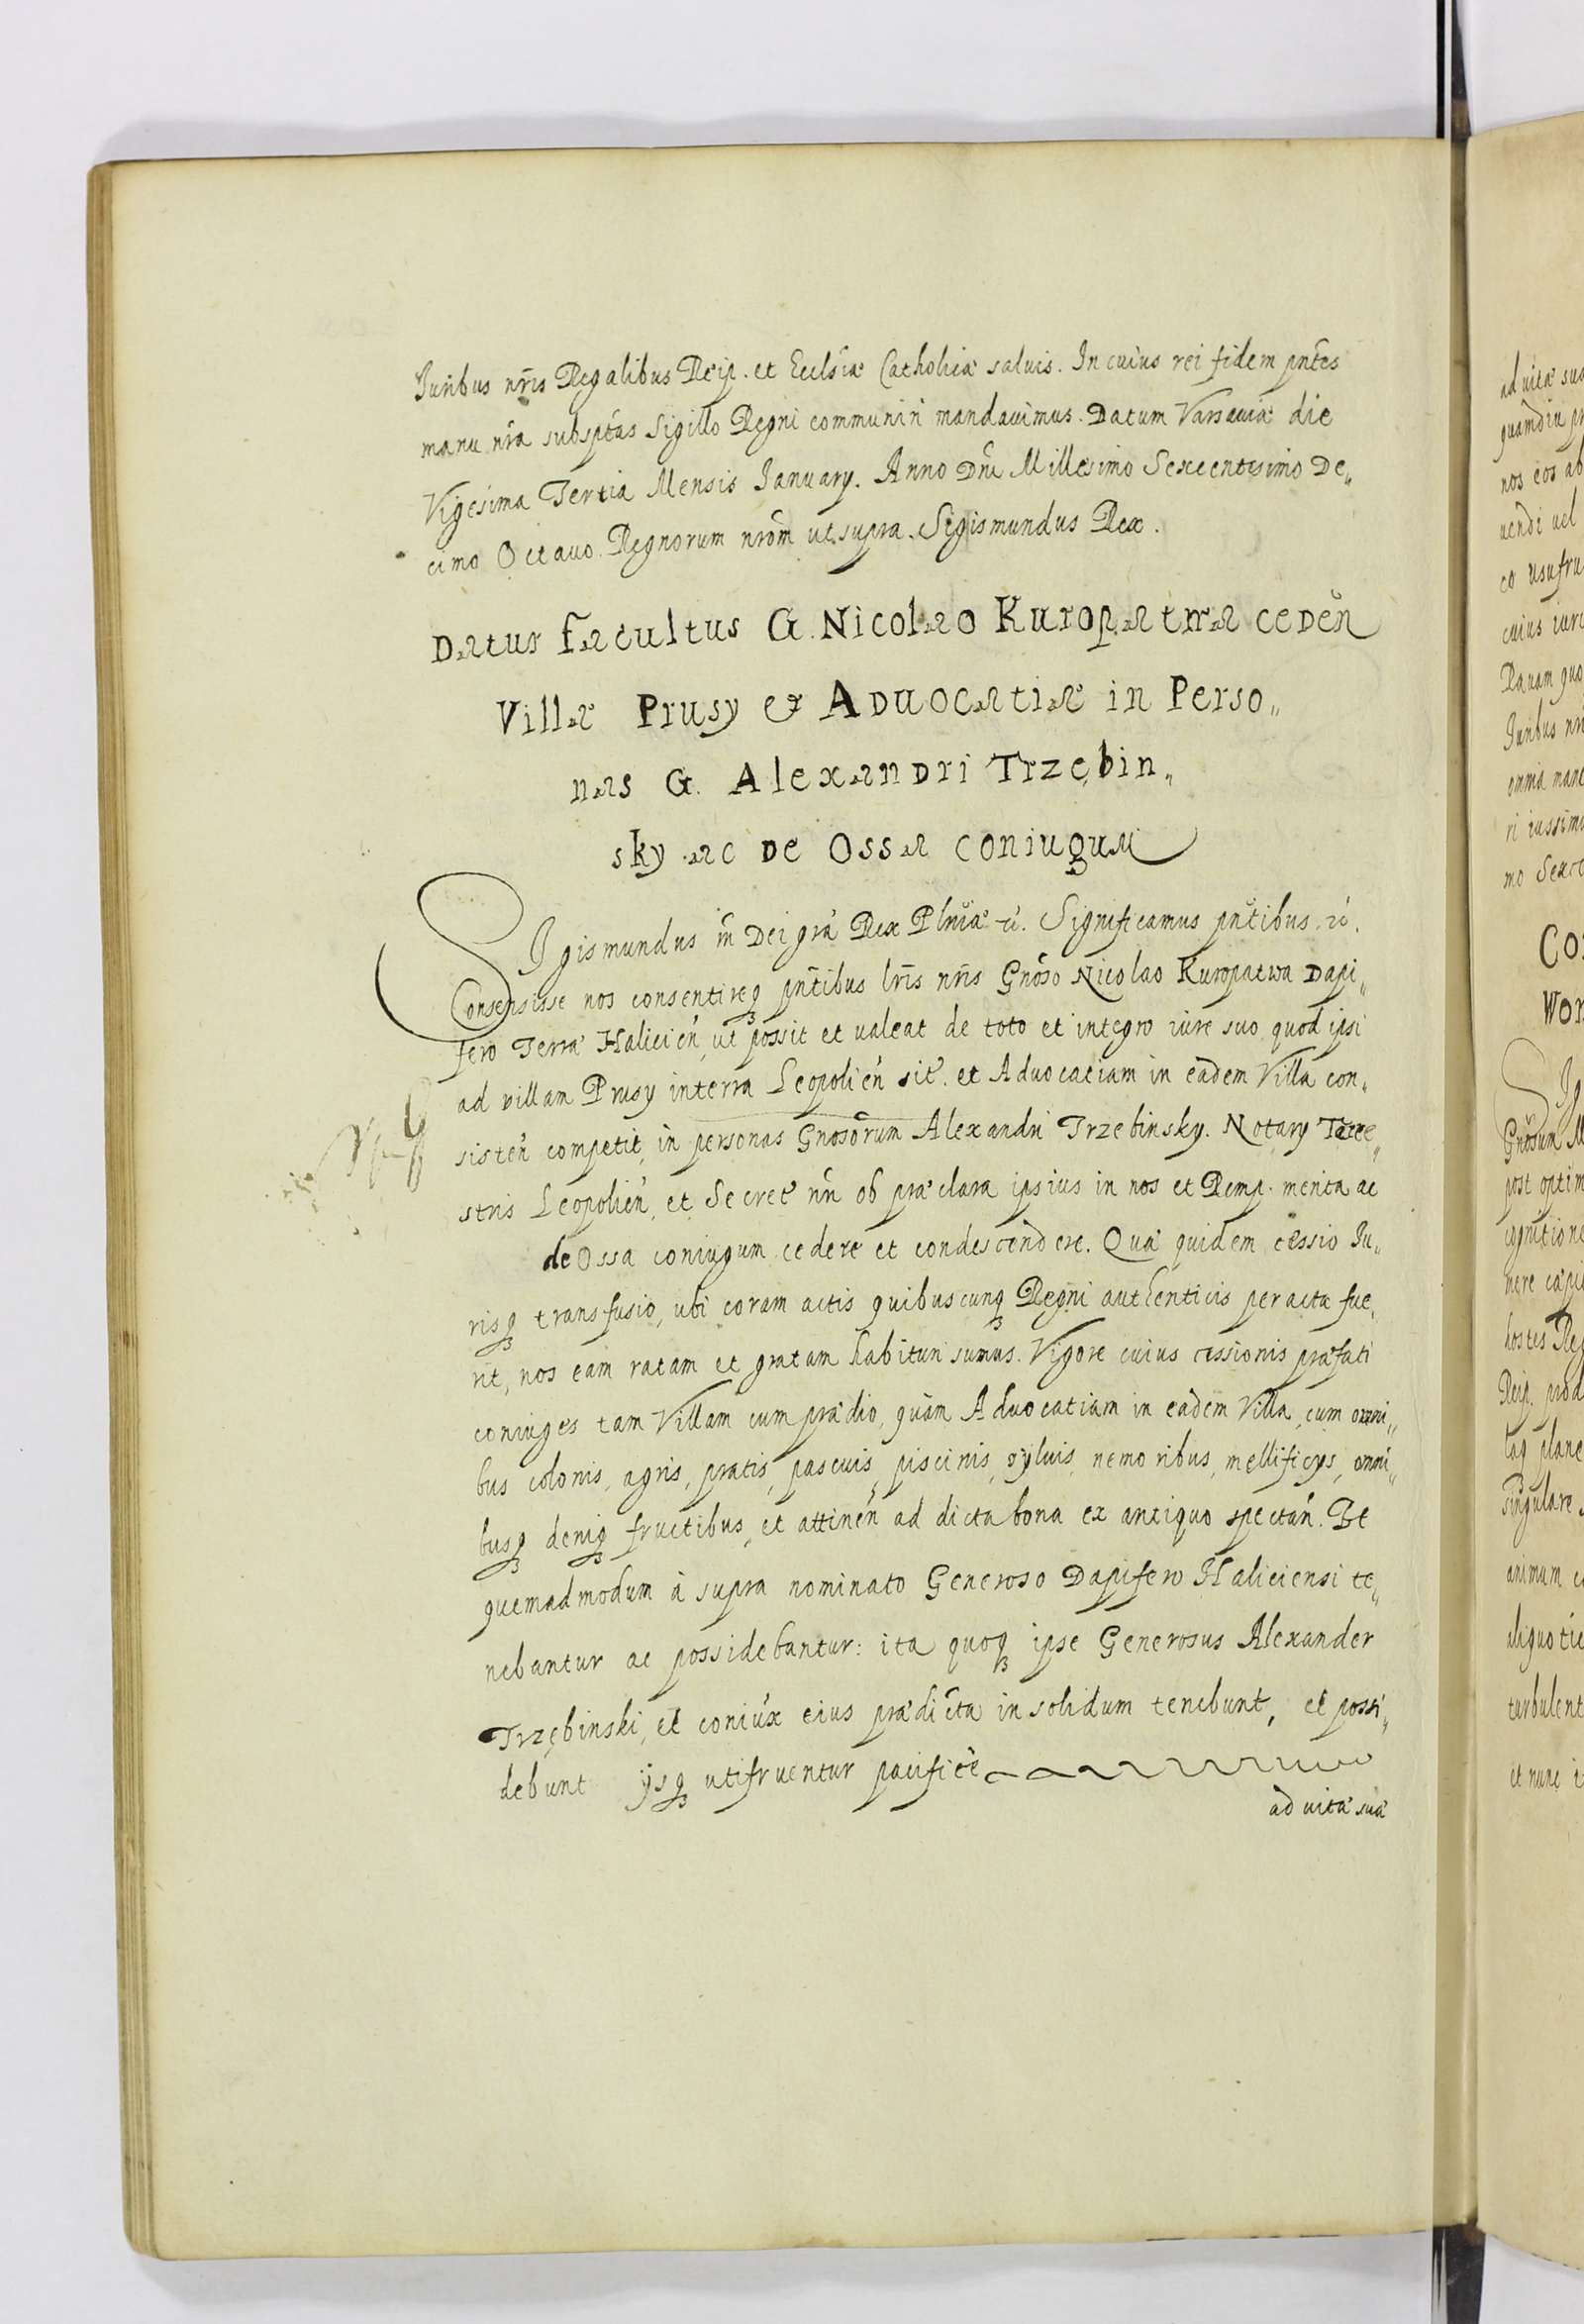 Juribus nr̃is Regalibus Reip. et Ecclsiæ Catholicæ saluis. In cuius rei fidem pnt̃es
manu nrã subsptas Sigillo Regni communiri mandauimus. Datum Varsauiæ die
Vigesima Tertia Mensis January. Anno Dnĩ Millesimo Sexcentesimo De„
cimo Octauo Regnorum nrõm ut supra. Sigismundus Rex.
Datur facultus G. Nicolao Kuropatwa ceden̄
Villæ Prusy et Aduocatiæ in Perso„
nas G. Alexandri Trzębin„
sky ac de Ossa coniugum
Sigismundus III Dei grã Rex Plniæ etc. Significamus pnt̃ibus etc.
Consensisse nos consentireqȝ pnt̃ibus lr̃is nr̃is Gnõso Nicolao Kuropatwa Dapi„
fero Terræ Halicien̄, ut possit et ualeat de toto et integro iure suo quod ipsi
ad villam Prusy in terra Leopolien̄ sit̃. et Aduocatiam in eadem Villa con„
sisten̄ competit, in personas Gnosõrum Alexandri Trzebinsky. Notary Terre„
stris Leopolien̄, et Secret̃ nri̅ ob præclara ipsius in nos et Remp. merita ac
de Ossa coniugum cedere et condescendere. Quæ quidem cessio Ju„
risqȝ transfusio, ubi coram actis quibuscunqȝ Regni authenticis peracta fue„
rit, nos eam ratam et gratam habituri sumus. Vigore cuius cessionis præfati
coniuges tam Villam cum prædio, quàm Aduocatiam in eadem Villa, cum omni„
bus colonis, agris, pratis, pascuis, piscinis, syluis, nemoribus, mellificys, omni„
busqȝ deniqȝ fructibus, et attinen̄ ad dicta bona ex antiquo spectan̄. Et
quemadmodum à supra nominato Generoso Dapifero Haliciensi te„
nebantur ac possidebantur: ita quoqȝ ipse Generosus Alexander
Trzębinski, et coniux eius prædicta in solidum tenebunt, et possi„
debunt ijsqȝ utifruentur pacifice
ad uitæ suæ